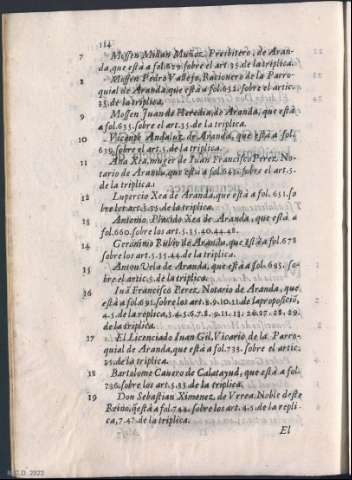 114
7 Mossen Millan Muñoz, Presbitero, de Aran-
da, que està a fol. 629. sobre el art. 35. de la triplica.
8 Mossen Pedro Vallejo, Racionero de la Parro-
quial de Aranda, que està a fol. 632. sobre el artic.
35. de la triplica.
9 Mossen Juan de Heredia, de Aranda, que està
a fol. 635. sobre el art. 35. de la triplica.
10 Vicente Andaluz de Aranda, que està a fol.
639. sobre el art. 5. de la triplica.
11 Ana Xea, muger de Iuan Francisco Perez, No-
tario de Aranda, que està a fol. 645. sobre el art. 5.
de la triplica.
12 Lupercio Xea de Aranda, que està a fol. 651. so
bre los art. 5. 35. de la triplica.
13 Antonio Placido Xea de Aranda, que està a
fol. 660. sobre los art. 5. 35. 40. 44. 48.
14 Geronimo Rubio de Aranda, que està a fol. 678
sobre los art. 5. 35. 44. de la triplica.
15 Anton Vela de Aranda, que està a fol. 685. so-
bre el artic. 5. de la triplica.
16 Iuã Francisco Perez, Notario de Aranda, que
està a fol. 691. sobre los art. 8. 9. 10. 11. de la proposició,
4. 5. de la replica, 3. 4. 5. 6. 7. 8. 9. 11. 13. 26. 27. 28. 29.
de la triplica.
17 El Licenciado Iuan Gil, Vicario de la Parro-
quial de Aranda, que està a fol. 733. sobre el artic.
35. de la triplica.
18 Bartolome Cavero de Calatayud, que està a fol.
736. sobre los art. 5. 33. de la triplica.
19 Don Sebastian Ximenez, de Vrrea, Noble deste
Reino, q̃ està a fol. 744. sobre los art. 4. 5. de la repli
ca, 7. 47. de la triplica.
El